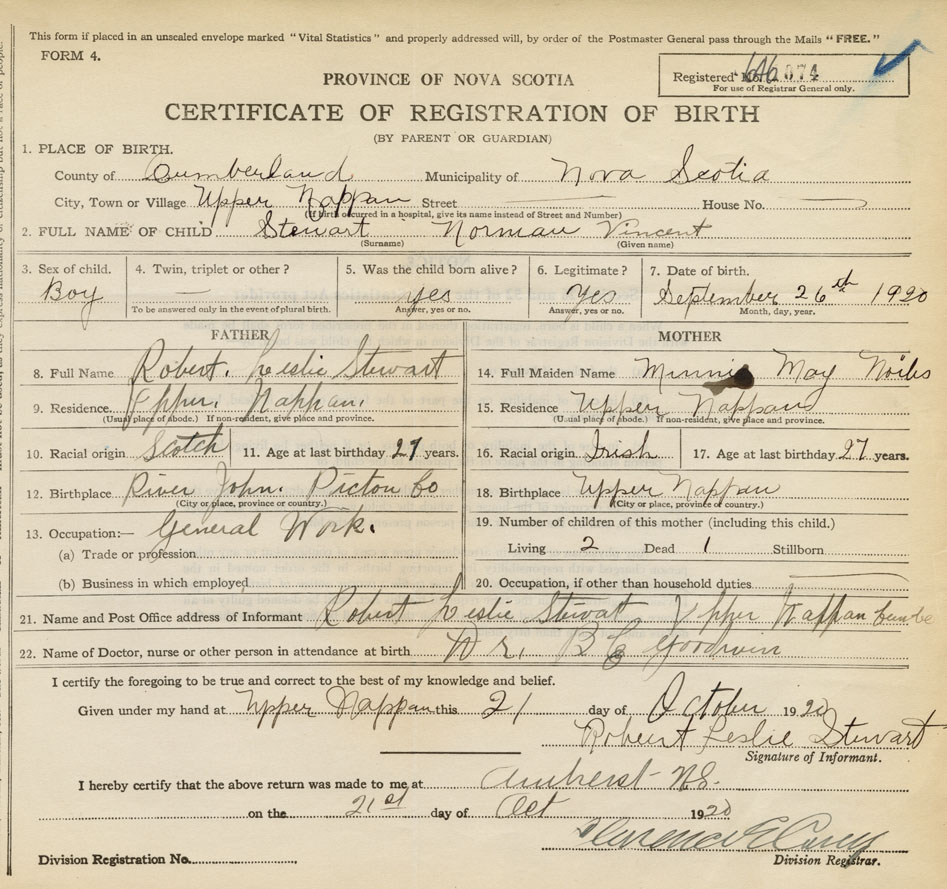 This form if placed in an unsealed envelope marked "Vital Statistics" and properly addressed will, by order of the Postmaster General pass through the Mails "FREE."
FORM 4.
PROVINCE OF NOVA SCOTIA
Registered 074
For use of Registrar General only.
CERTIFICATE OF REGISTRATION OF BIRTH
(BY PARENT OR GUARDIAN)
1. PLACE OF BIRTH.
County of Cumberland Municipality of Nova Scotia
City, Town or Village Upper Nappan Street House No.
(If birth occurred in a hospital, give its name instead of Street and Number)
2. FULL NAME OF CHILD Stewart Norman Vincent
(Surname) (Given name)
3. Sex of child. 4. Twin, triplet or other? 5. Was the child born alive? 6. Legitimate? 7. Date of birth.
Boy — yes Yes September 26th 1920
To be answered only in the event of plural birth. Answer, yes or no. Answer, yes or no. Month, day, year.
FATHER
8. Full Name Robert. Leslie Stewart
9. Residence Upper. Nappan.
(Usual place of abode.) If non-resident, give place and province.
10. Racial origin Scotch 11. Age at last birthday 27 years.
12. Birthplace River John. Picton Co
(City or place, province or country.)
13. Occupation:— General Work.
(a) Trade or profession
(b) Business in which employed
MOTHER
14. Full Maiden Name Minnie May
15. Residence Upper Nappan
(Usual place of abode.) If non-resident, give place and province.
16. Racial origin Irish 17. Age at last birthday 27 years.
18. Birthplace Upper Nappan
(City or place, province or country.)
19. Number of children of this mother (including this child.)
Living 2 Dead 1 Stillborn
20. Occupation, if other than household duties
21. Name and Post Office address of Informant Robert Leslie Stewat Upper Nappan
22. Name of Doctor, nurse or other person in attendance at birth Dr. Goodwin
I certify the foregoing to be true and correct to the best of my knowledge and belief.
Given under my hand at Upper Nappan this 21 day of October 1920
Robert Leslie Stewart
Signature of Informant.
I hereby certify that the above return was made to me at Amherst N.S.
on the 21st day of Oct 1920
Clarence E Casey
Division Registration No. Division Registrar.